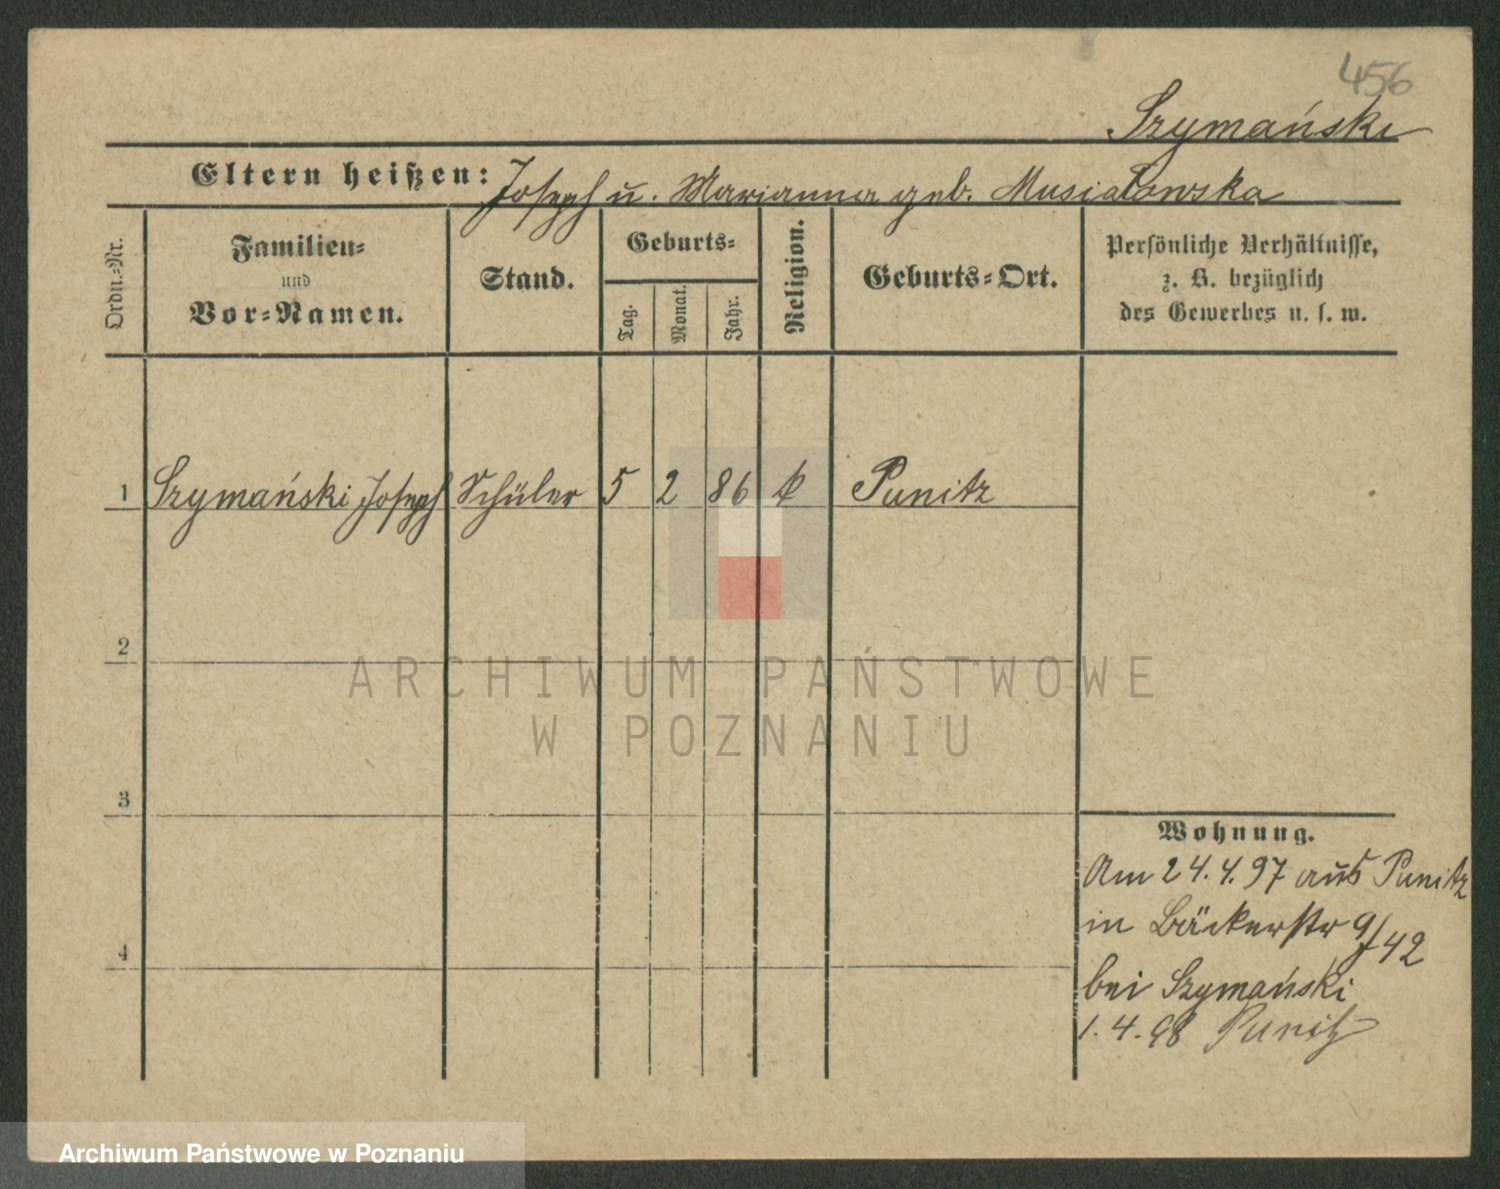 456
Szymański
Eltern heißen: Joseph u. Marianna geb. Musiałowska
Ordn.=Nr.
Familien=
und
Vor=Namen.
Stand.
Geburts=
Tag.
Monat.
Jahr.
Religion.
Geburts=Ort.
Persönliche Verhältnisse,
z. B. bezüglich
des Gewerbes u. s. w.
1 Szymański Joseph Schüler 5 2 86 k Punitz
2
3
4
Wohnung.
Am 24.4.97 aus Punitz
in Bäckerstr 9/42
bei Szymański
1.4.98 Punitz
ARCHIWUM PAŃSTWOWE
W POZNANIU
Archiwum Państwowe w Poznaniu